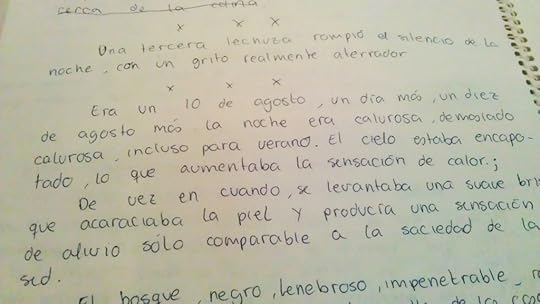 cerca de la colina
x x x
Una tercera lechuza rompió el silencio de la
noche, con un grito realmente aterrador
x x x
Era un 10 de agosto, un día más, un diez
de agosto más la noche era calurosa, demasiado
calurosa, incluso para verano. El cielo estaba encapo-
tado, lo que aumentaba la sensación de calor.;
De vez en cuando, se levantaba una suave bris
que acaraciaba la piel y producía una sensación
de alivio sólo comparable a la saciedad de la
sed.
El bosque, negro, tenebroso, impenetrable,